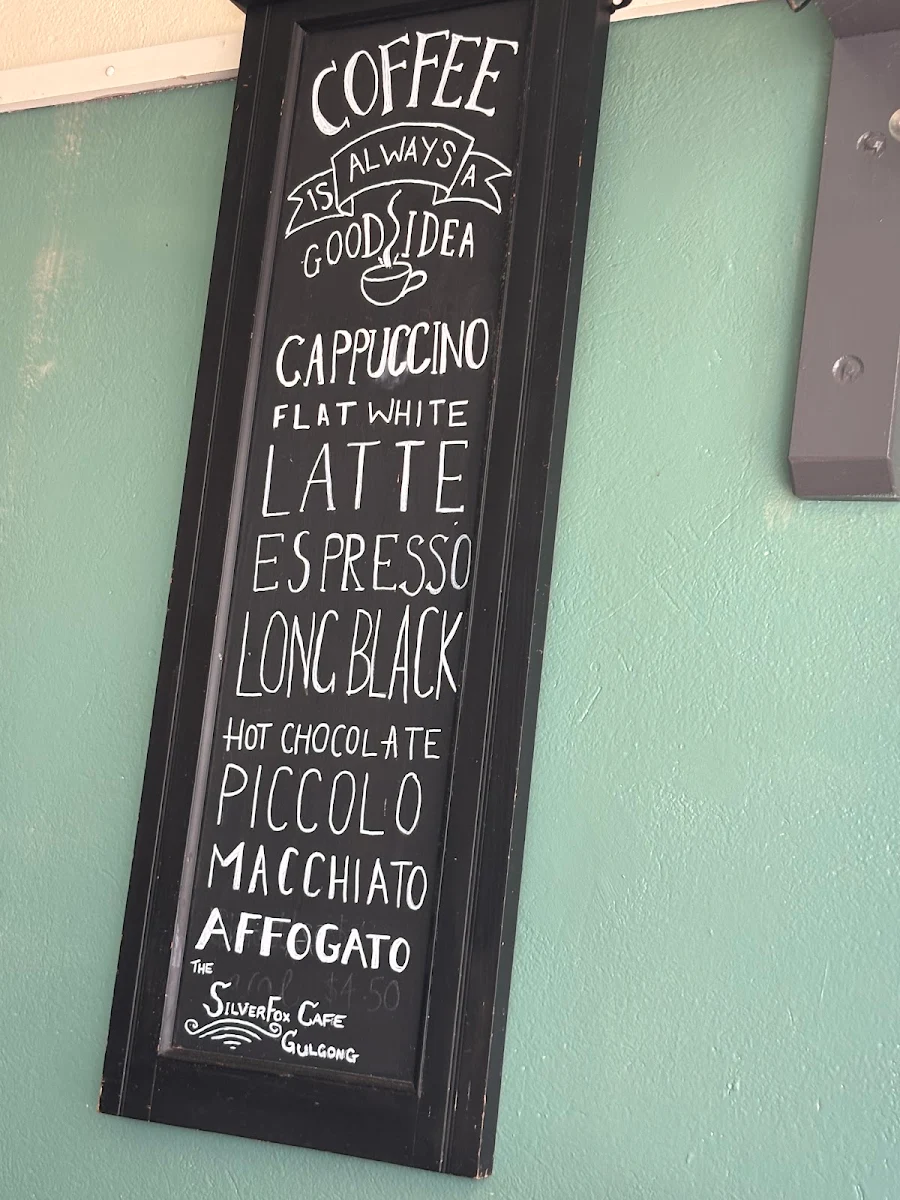 COFFEE
IS ALWAYS A
GOOD IDEA
CAPPUCCINO
FLAT WHITE
LATTE
ESPRESSO
LONG BLACK
HOT CHOCOLATE
PICCOLO
MACCHIATO
AFFOGATO
THE
$4.50
SILVERFOX CAFE
GULGONG